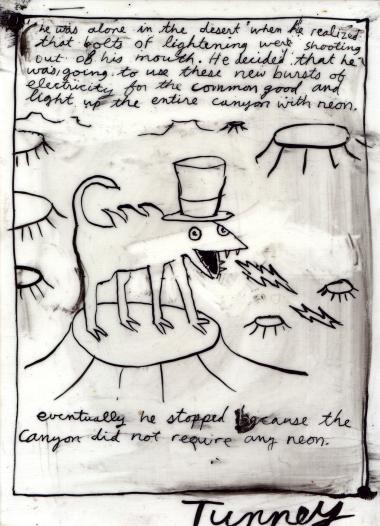 he was alone in the desert when he realized
that bolts of lightening were shooting
out of his mouth. He decided that he
was going to use these new bursts of
electricity for the common good and
light up the entire canyon with neon.
eventually he stopped because the
Canyon did not require any neon.
Tunney